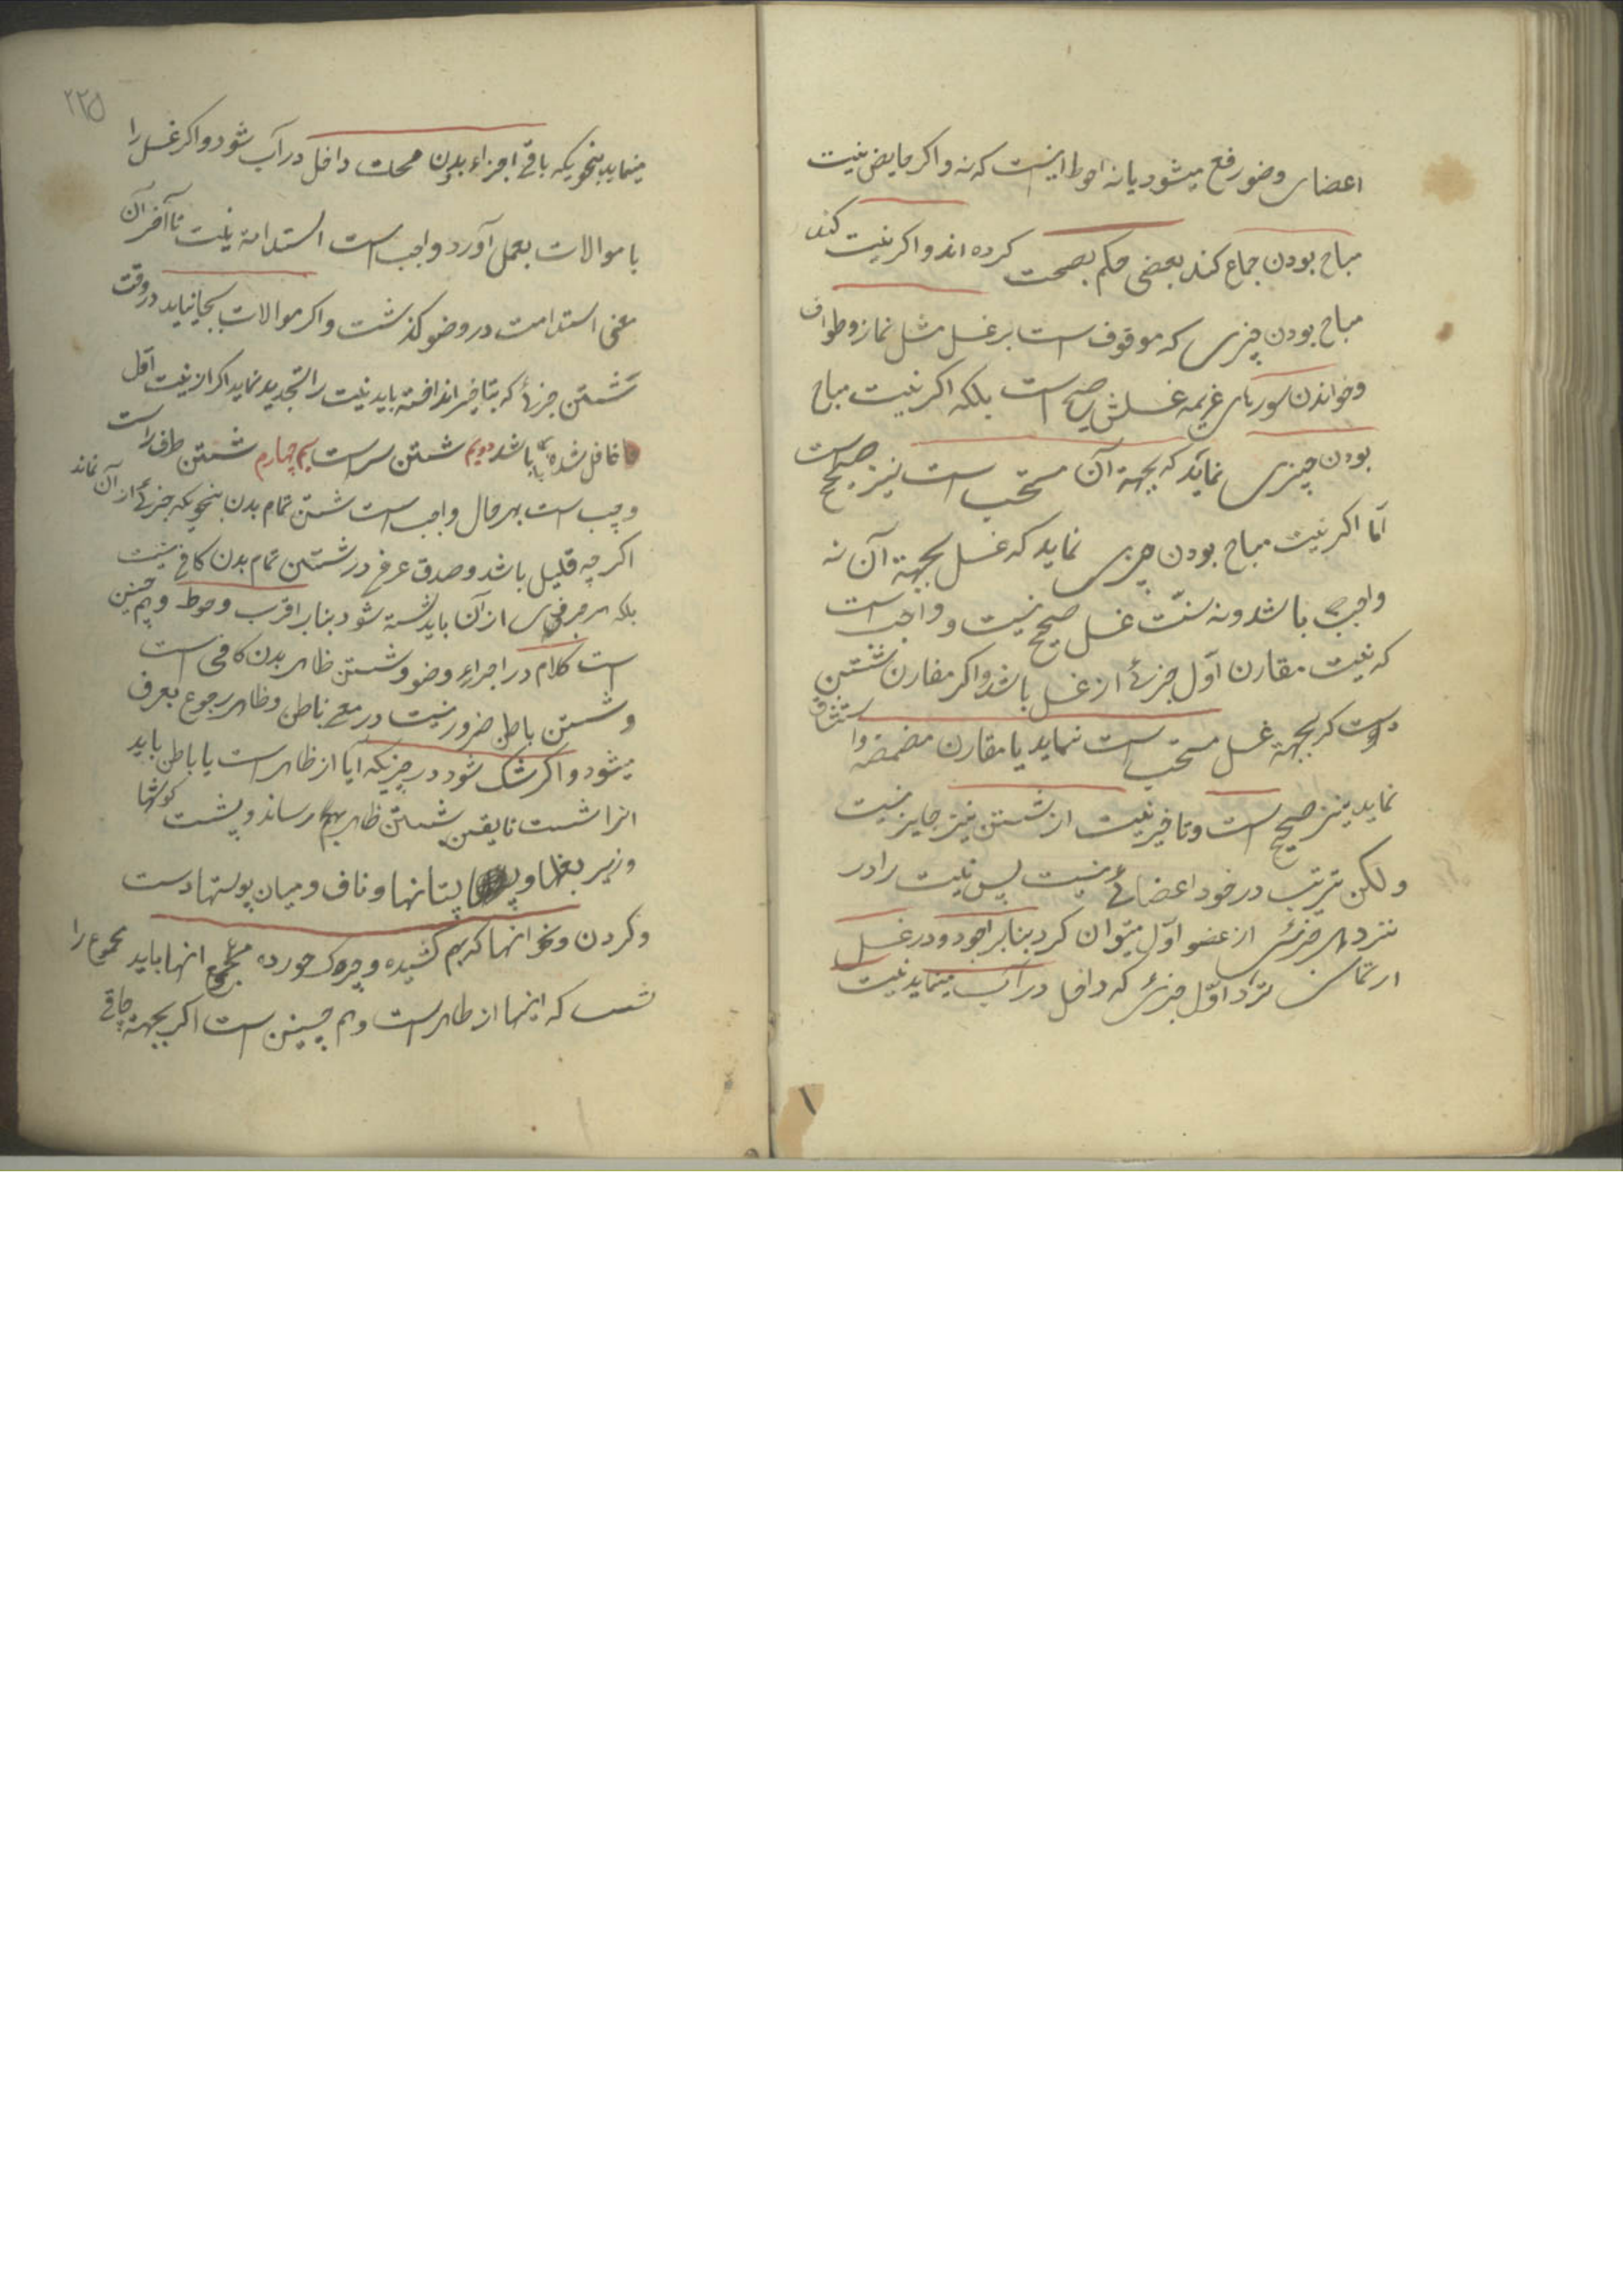 اعضای وضو رفع میشود یا نه احوط اینست که نه و اکر حایض نیت
مباح بودن جماع کند بعضی حکم بصحت کرده اند و اکر نیت کند
مباح بودن چیزی که موقوف است بر غسل مثل نماز و طواف
و خواندن سورهای عزیمه غسلش صحیح است بلکه اکر نیت مباح
بودن چیزی نماید که بجهة آن مستحب است نیز صحیح است
اما اکر نیت مباح بودن چیزی نماید که غسل بجهة آن نه
واجب باشد و نه سنّت غسل صحیح نیست و واجب است
که نیت مقارن اوّل جزئی از غسل باشد و اکر مقارن شستن
دست که بجهة غسل مستحب است نماید یا مقارن مضمضه و استنشاق
نماید نیز صحیح است و تاخیر نیت از شستن نیز جایز نیست
و لکن ترتیب در خود اعضائی نیست پس نیت را در
نزد هر جزئی از عضو اوّل میتوان کرد بنابر اجود و در غسل
ارتماسی نزد اوّل جزئی که داخل در آب مینماید نیت
۲۲۵
مینماید بنحویکه باقی اجزاء بدن محلت داخل در آب شود و اکر غسل را
با موالات بعمل آورد واجب است استدامة نیت تا آخر آن
معنی استدامت در وضو کذشت و اکر موالات بجا نیاید در وقت
شستن جزئی که بتاخیر انداخته باید نیت را تجدید نماید اکر از نیت اول
غافل شده باشد دویم شستن سر است سیم چهارم شستن طرف راست
و چپ است بهر حال واجب است شستن تمام بدن بنحویکه جزئی از آن نماند
اکر چه قلیل باشد و صدق عرفی در شستن تمام بدن کافی نیست
بلکه هر جزئی از آن باید شسته شود بنابر اقرب و احوط و هم چنین
است کلام در اجزاء وضو و شستن ظاهر بدن کافی است
و شستن باطن ضرور نیست در معنی باطن و ظاهر رجوع بعرف
میشود و اکر شک شود در چیزیکه آیا از ظاهر است یا باطن باید
انرا شست تا یقین بشستن ظاهر بهم رساند و پشت کوشها
و زیر بغلها و پستانها و ناف و میان پوستها دست
و کردن و نحو انها که بهم کشیده و چروک خورده مجموع انها باید مجموع را
شست که اینها از ظاهر است و هم چنین است اکر بجهة چاقی